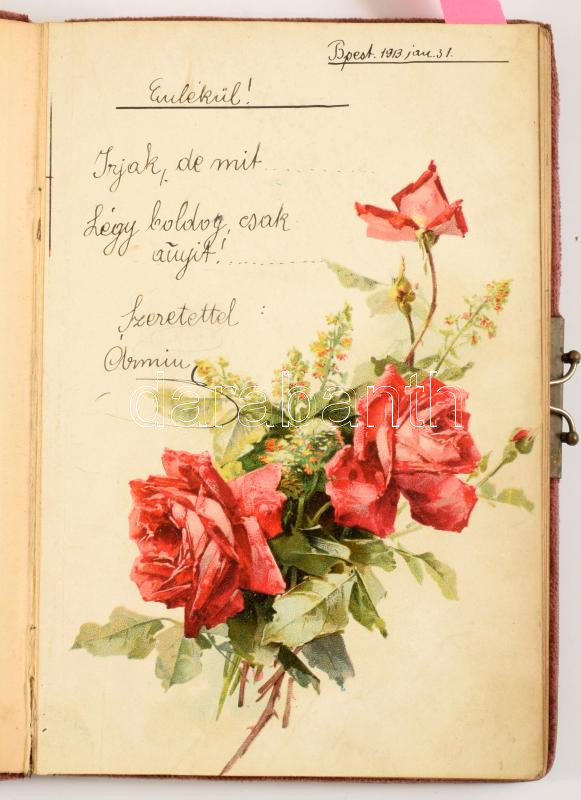 Bpest. 1913 jan. 31.
Emlékül!
Irjak, de mit..............
Légy boldog, csak
añyit!..............
Szeretettel :
Ármin
darabanth